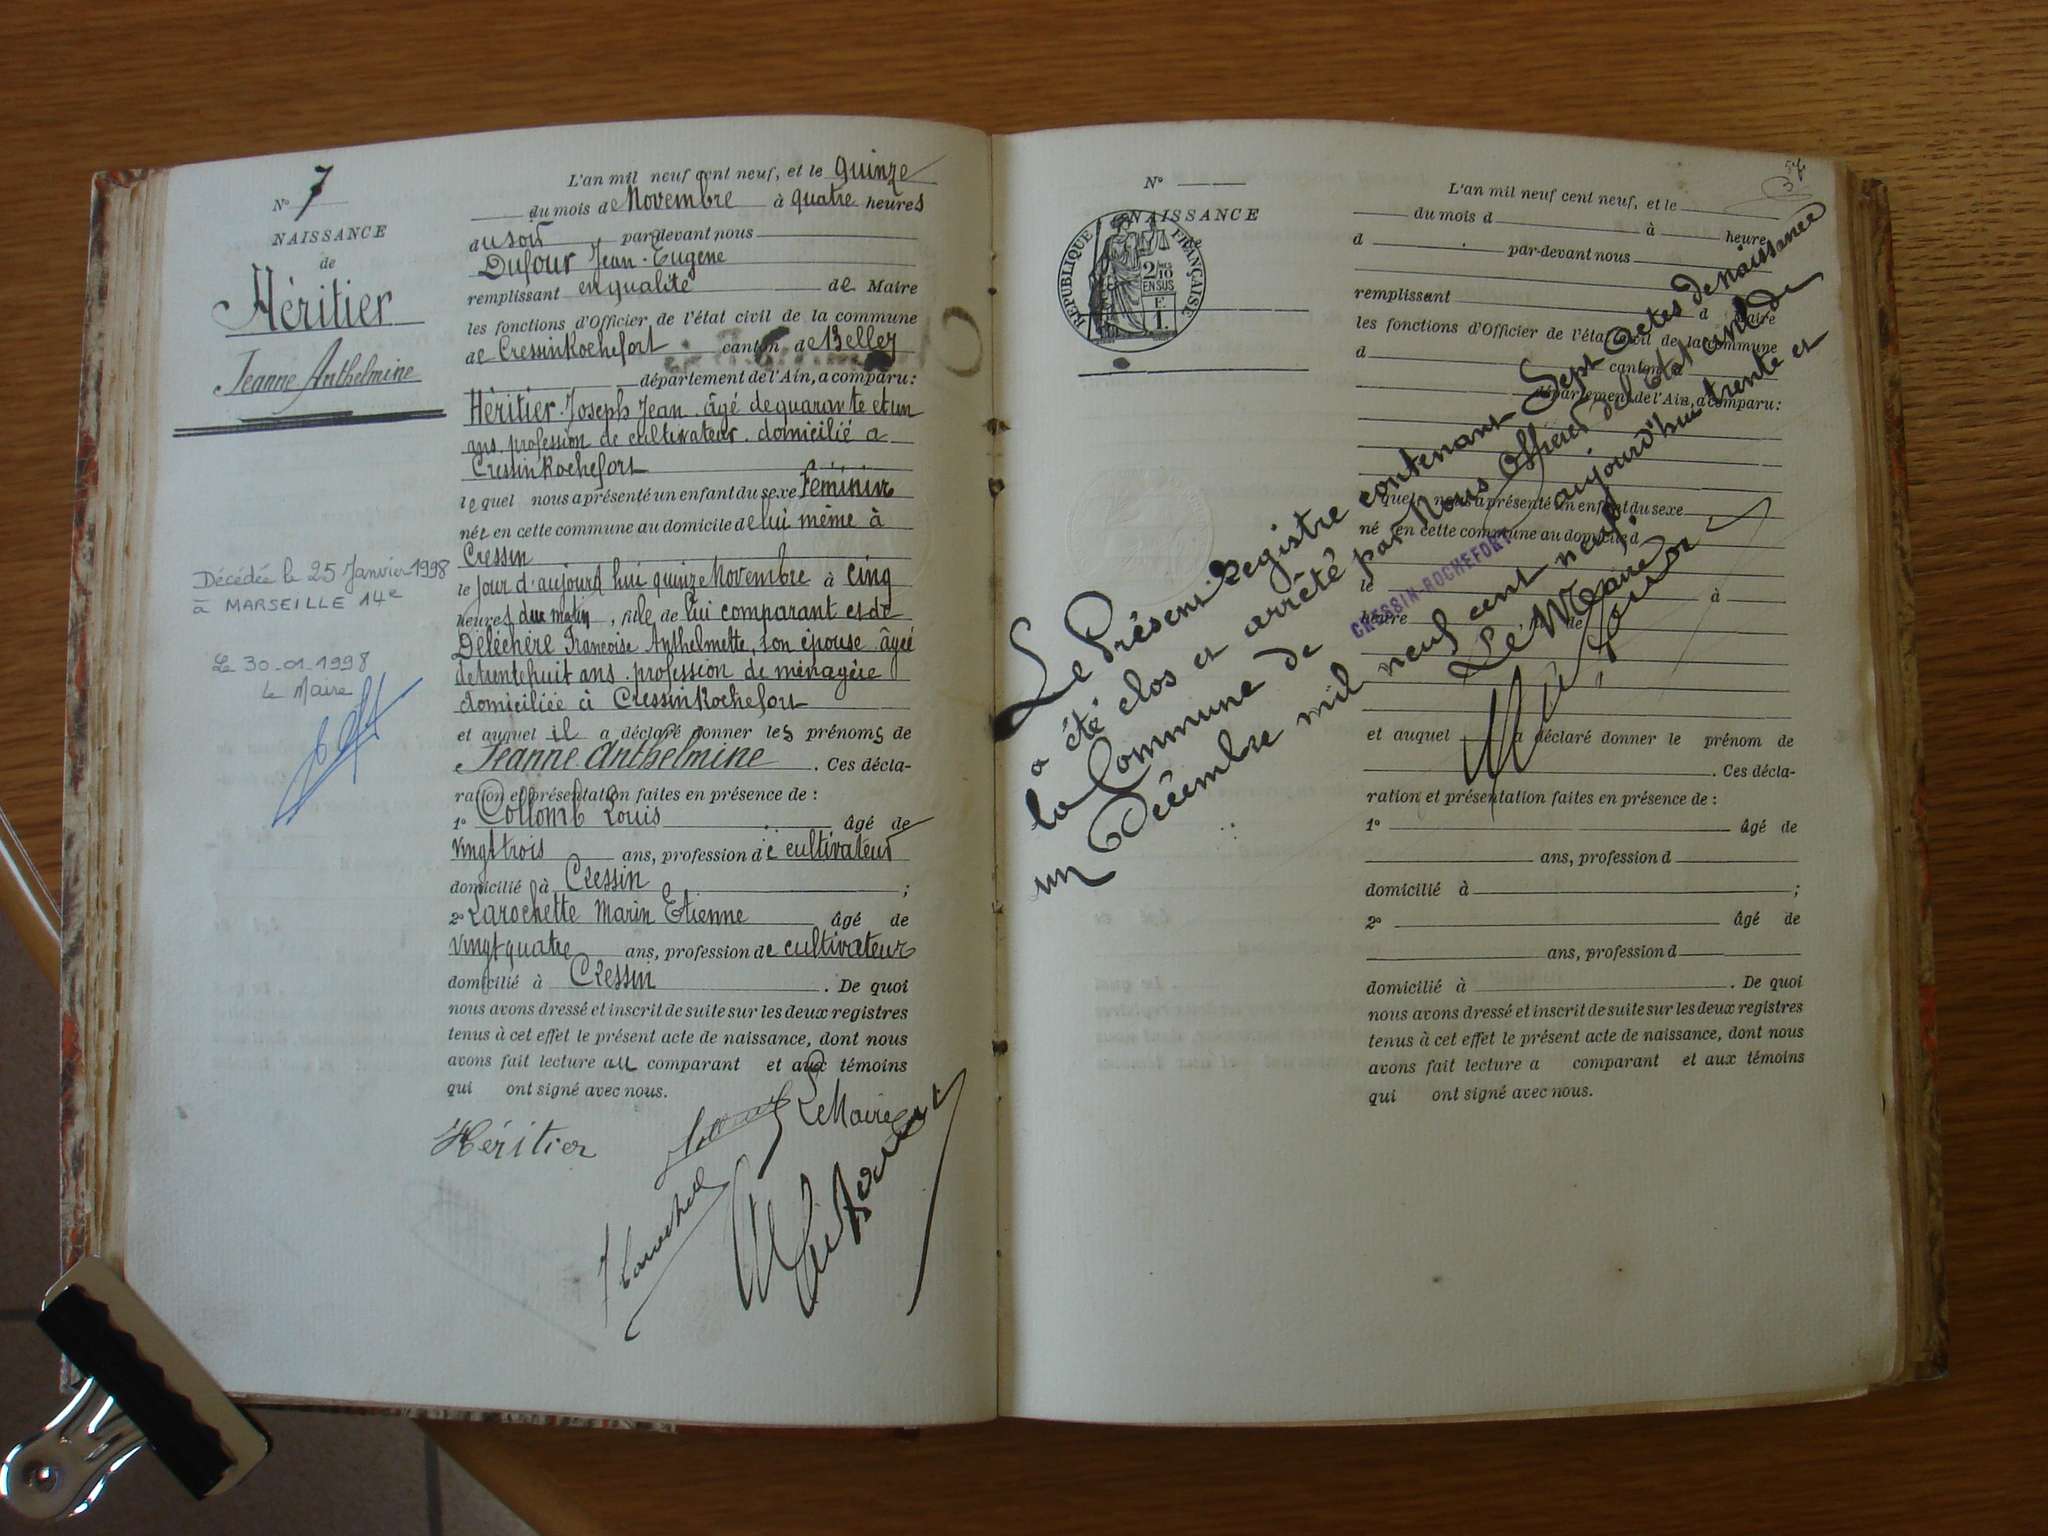 N° 7
NAISSANCE
de
Héritier
Jeanne Anthelmine
Décédée le 25 Janvier 1998
à MARSEILLE 14e
Le 30-01-1998
Le Maire
L'an mil neuf cent neuf, et le quinze
du mois de Novembre à quatre heures
du soir par-devant nous
Dufour Jean-Eugène
remplissant en qualité de Maire
les fonctions d'Officier de l'état civil de la commune
de CressinRochefort canton de Belley
département de l'Ain, a comparu:
Héritier Joseph Jean âgé de quarante et un
ans profession de cultivateur domicilié à
CressinRochefort
lequel nous a présenté un enfant du sexe féminin
née en cette commune au domicile de lui même à
Cressin
le jour d'aujourd'hui quinze Novembre à cinq
heures du matin, fille de lui comparant et de
Déléchère Françoise Anthelmette, son épouse âgée
de trentehuit ans profession de ménagère
domiciliée à CressinRochefort
et auquel il a déclaré donner les prénoms de
Jeanne Anthelmine. Ces décla-
ration et présentation faites en présence de :
1° Collomb Louis âgé de
vingt trois ans, profession de cultivateur
domicilié à Cressin ;
2° Larochette Marin Etienne âgé de
vingt quatre ans, profession de cultivateur
domicilié à Cressin. De quoi
nous avons dressé et inscrit de suite sur les deux registres
tenus à cet effet le présent acte de naissance, dont nous
avons fait lecture au comparant et aux témoins
qui ont signé avec nous.
Héritier
Le Maire
N°
NAISSANCE
RÉPUBLIQUE FRANÇAISE
2/10
EN SUS
F.
1.
L'an mil neuf cent neuf, et le
du mois d à heure
d par-devant nous
remplissant d Maire
les fonctions d'Officier de l'état civil de la commune
d canton
département de l'Ain, a comparu:
quel nous a présenté un enfant du sexe
né en cette commune au domicile d
le à
heure , fil de
et auquel a déclaré donner le prénom de
. Ces décla-
ration et présentation faites en présence de :
1° âgé de
ans, profession d
domicilié à ;
2° âgé de
ans, profession d
domicilié à . De quoi
nous avons dressé et inscrit de suite sur les deux registres
tenus à cet effet le présent acte de naissance, dont nous
avons fait lecture a comparant et aux témoins
qui ont signé avec nous.
Le Présent Registre contenant Sept Actes de Naissance
a été clos et arrêté par Nous Officier de l'état civil de
la Commune de CRESSIN-ROCHEFORT aujourd'hui trente et
un Décembre mil neuf cent neuf.
Le Maire